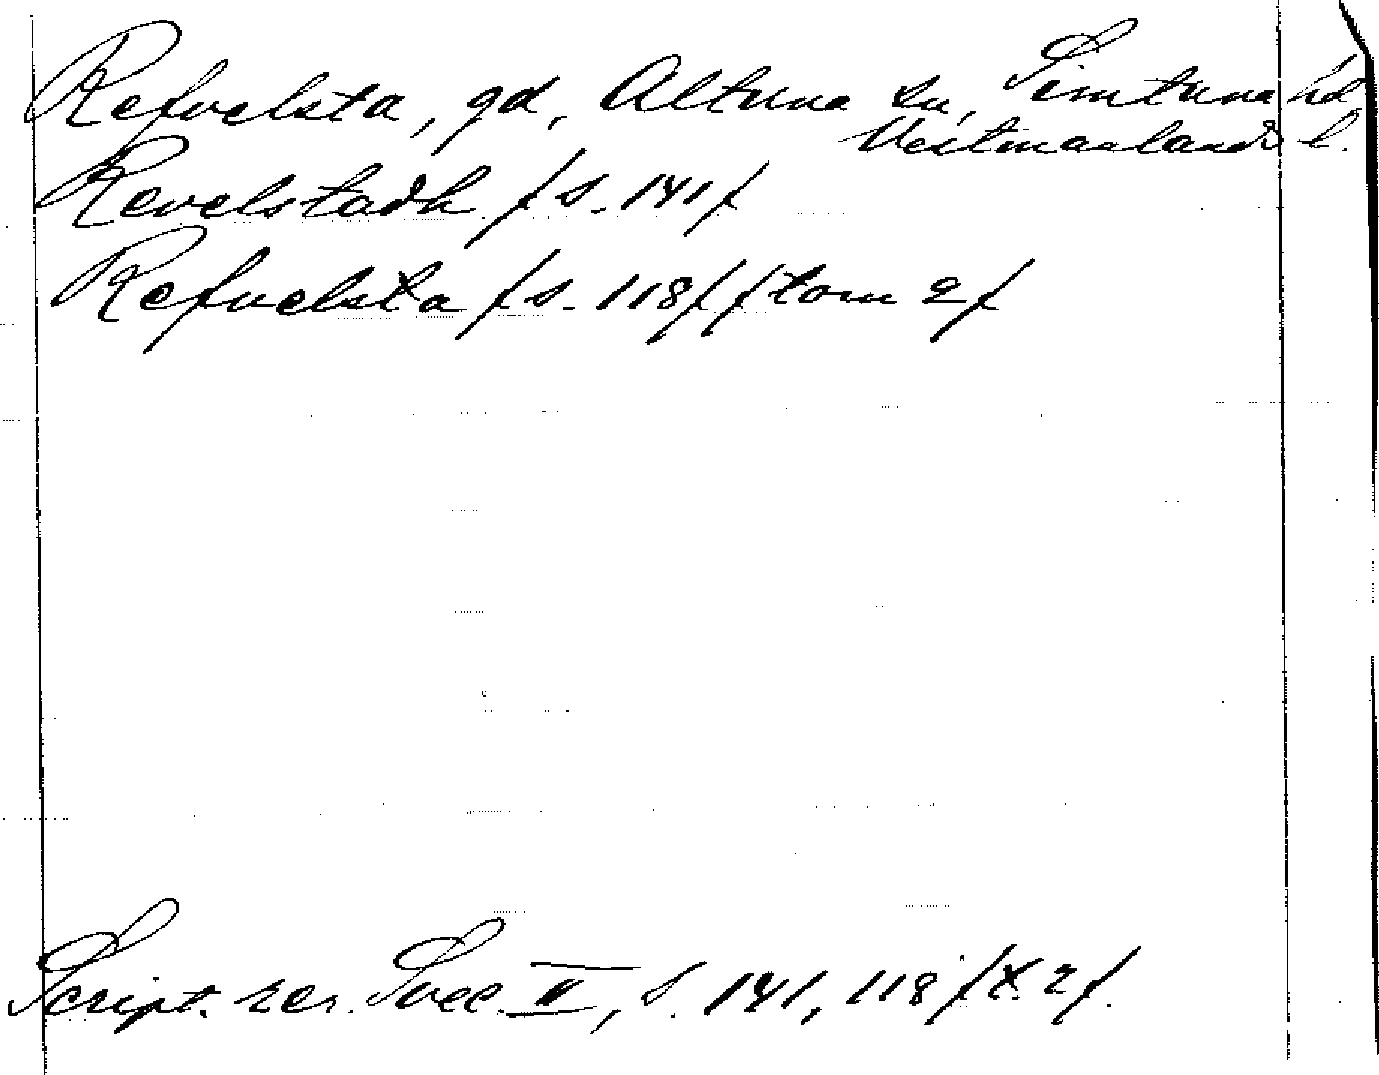 Refvelsta, gd, Altuna sn, Simtuna hd,
Vestmanlands l.
Revelstadh / s. 141 /
Refvelsta / s. 118 / / tom 2 /
Script. rer. Svec. II, s. 141, 118 / t. 2 /.